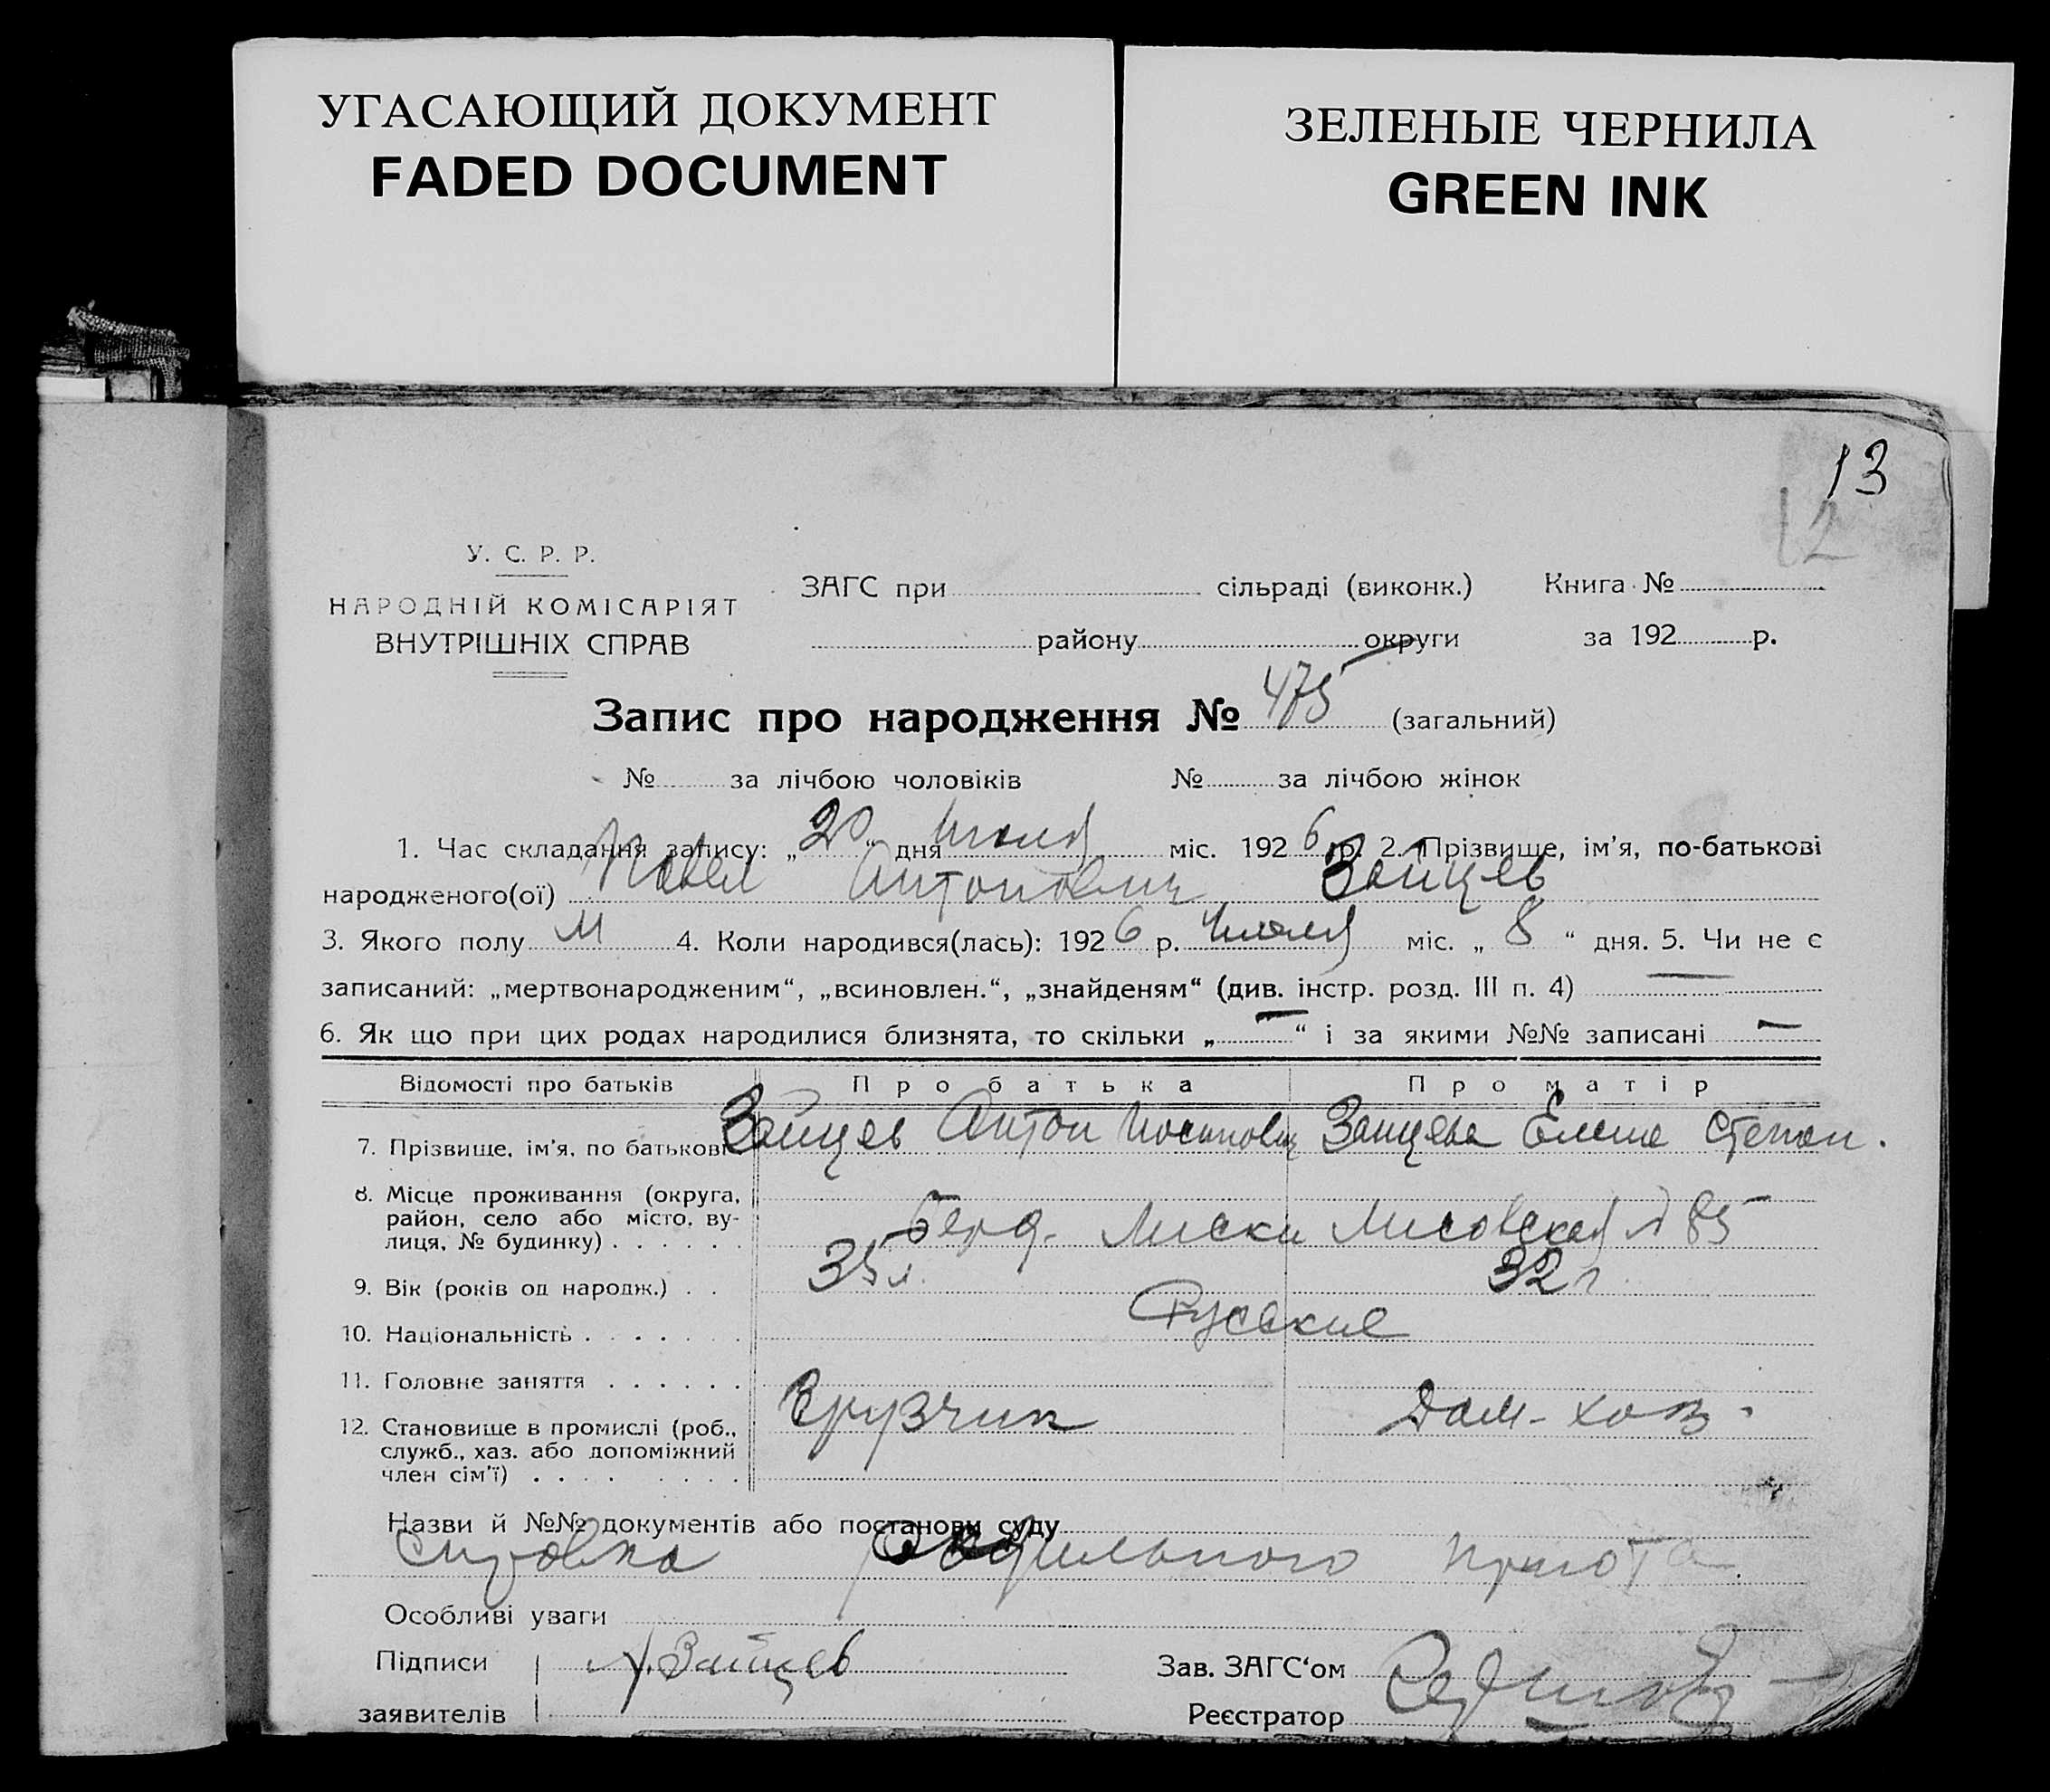 УГАСАЮЩИЙ ДОКУМЕНТ
FADED DOCUMENT
ЗЕЛЕНЫЕ ЧЕРНИЛА
GREEN INK
13
12
У. С. Р. Р.
НАРОДНІЙ КОМІСАРІЯТ
ВНУТРІШНІХ СПРАВ
ЗАГС при сільраді (виконк.) Книга №
району округи за 192 р.
Запис про народження № 475 (загальний)
№ за лічбою чоловіків № за лічбою жінок
1. Час складання запису: „20“ дня Июля міс. 1926 р. 2. Прізвище, ім'я, по-батькові
народженого(ої) Павел Антонович Зайцев
3. Якого полу М 4. Коли народився(лась): 1926 р. Июля міс. „8“ дня. 5. Чи не є
записаний: „мертвонародженим“, „всиновлен.“, „знайденям“ (див. інстр. розд. III п. 4) —
6. Як що при цих родах народилися близнята, то скільки „—“ і за якими №№ записані —
Відомості про батьків Про батька Про матір
7. Прізвище, ім'я, по батькові Зайцев Антон Иосипович Зайцева Елена Степан.
8. Місце проживання (округа,
район, село або місто, ву-
лиця, № будинку) Берд. Лиски Лисовская д 85
9. Вік (років од народж.) 35 л. 32 г
10. Національність Русские
11. Головне заняття
Грузчик Дом-хоз.
12. Становище в промислі (роб.,
служб., хаз. або допоміжний
член сім'ї)
Назви й №№ документів або постанови суду
Справка родильного приюта.
Особливі уваги
Підписи А. Зайцев Зав. ЗАГС‘ом
заявителів Реєстратор